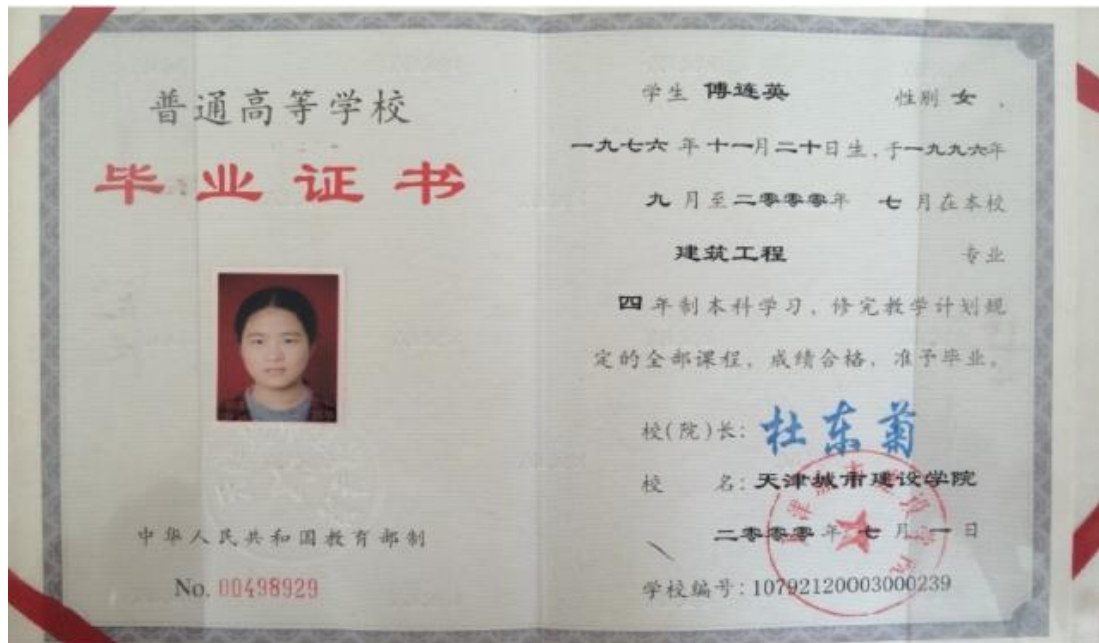 普通高等学校
毕业证书
中华人民共和国教育部制
No. 00498929
学生 傅连英 性别 女 ,
一九七六 年 十一月 二十日生,于一九九六年
九 月至二零零零年 七 月在本校
建筑工程 专业
四 年制本科学习，修完教学计划规
定的全部课程，成绩合格，准予毕业。
校(院)长: 杜东菊
校 名: 天津城市建设学院
二零零零 年 七 月 一 日
学校编号: 10792120003000239